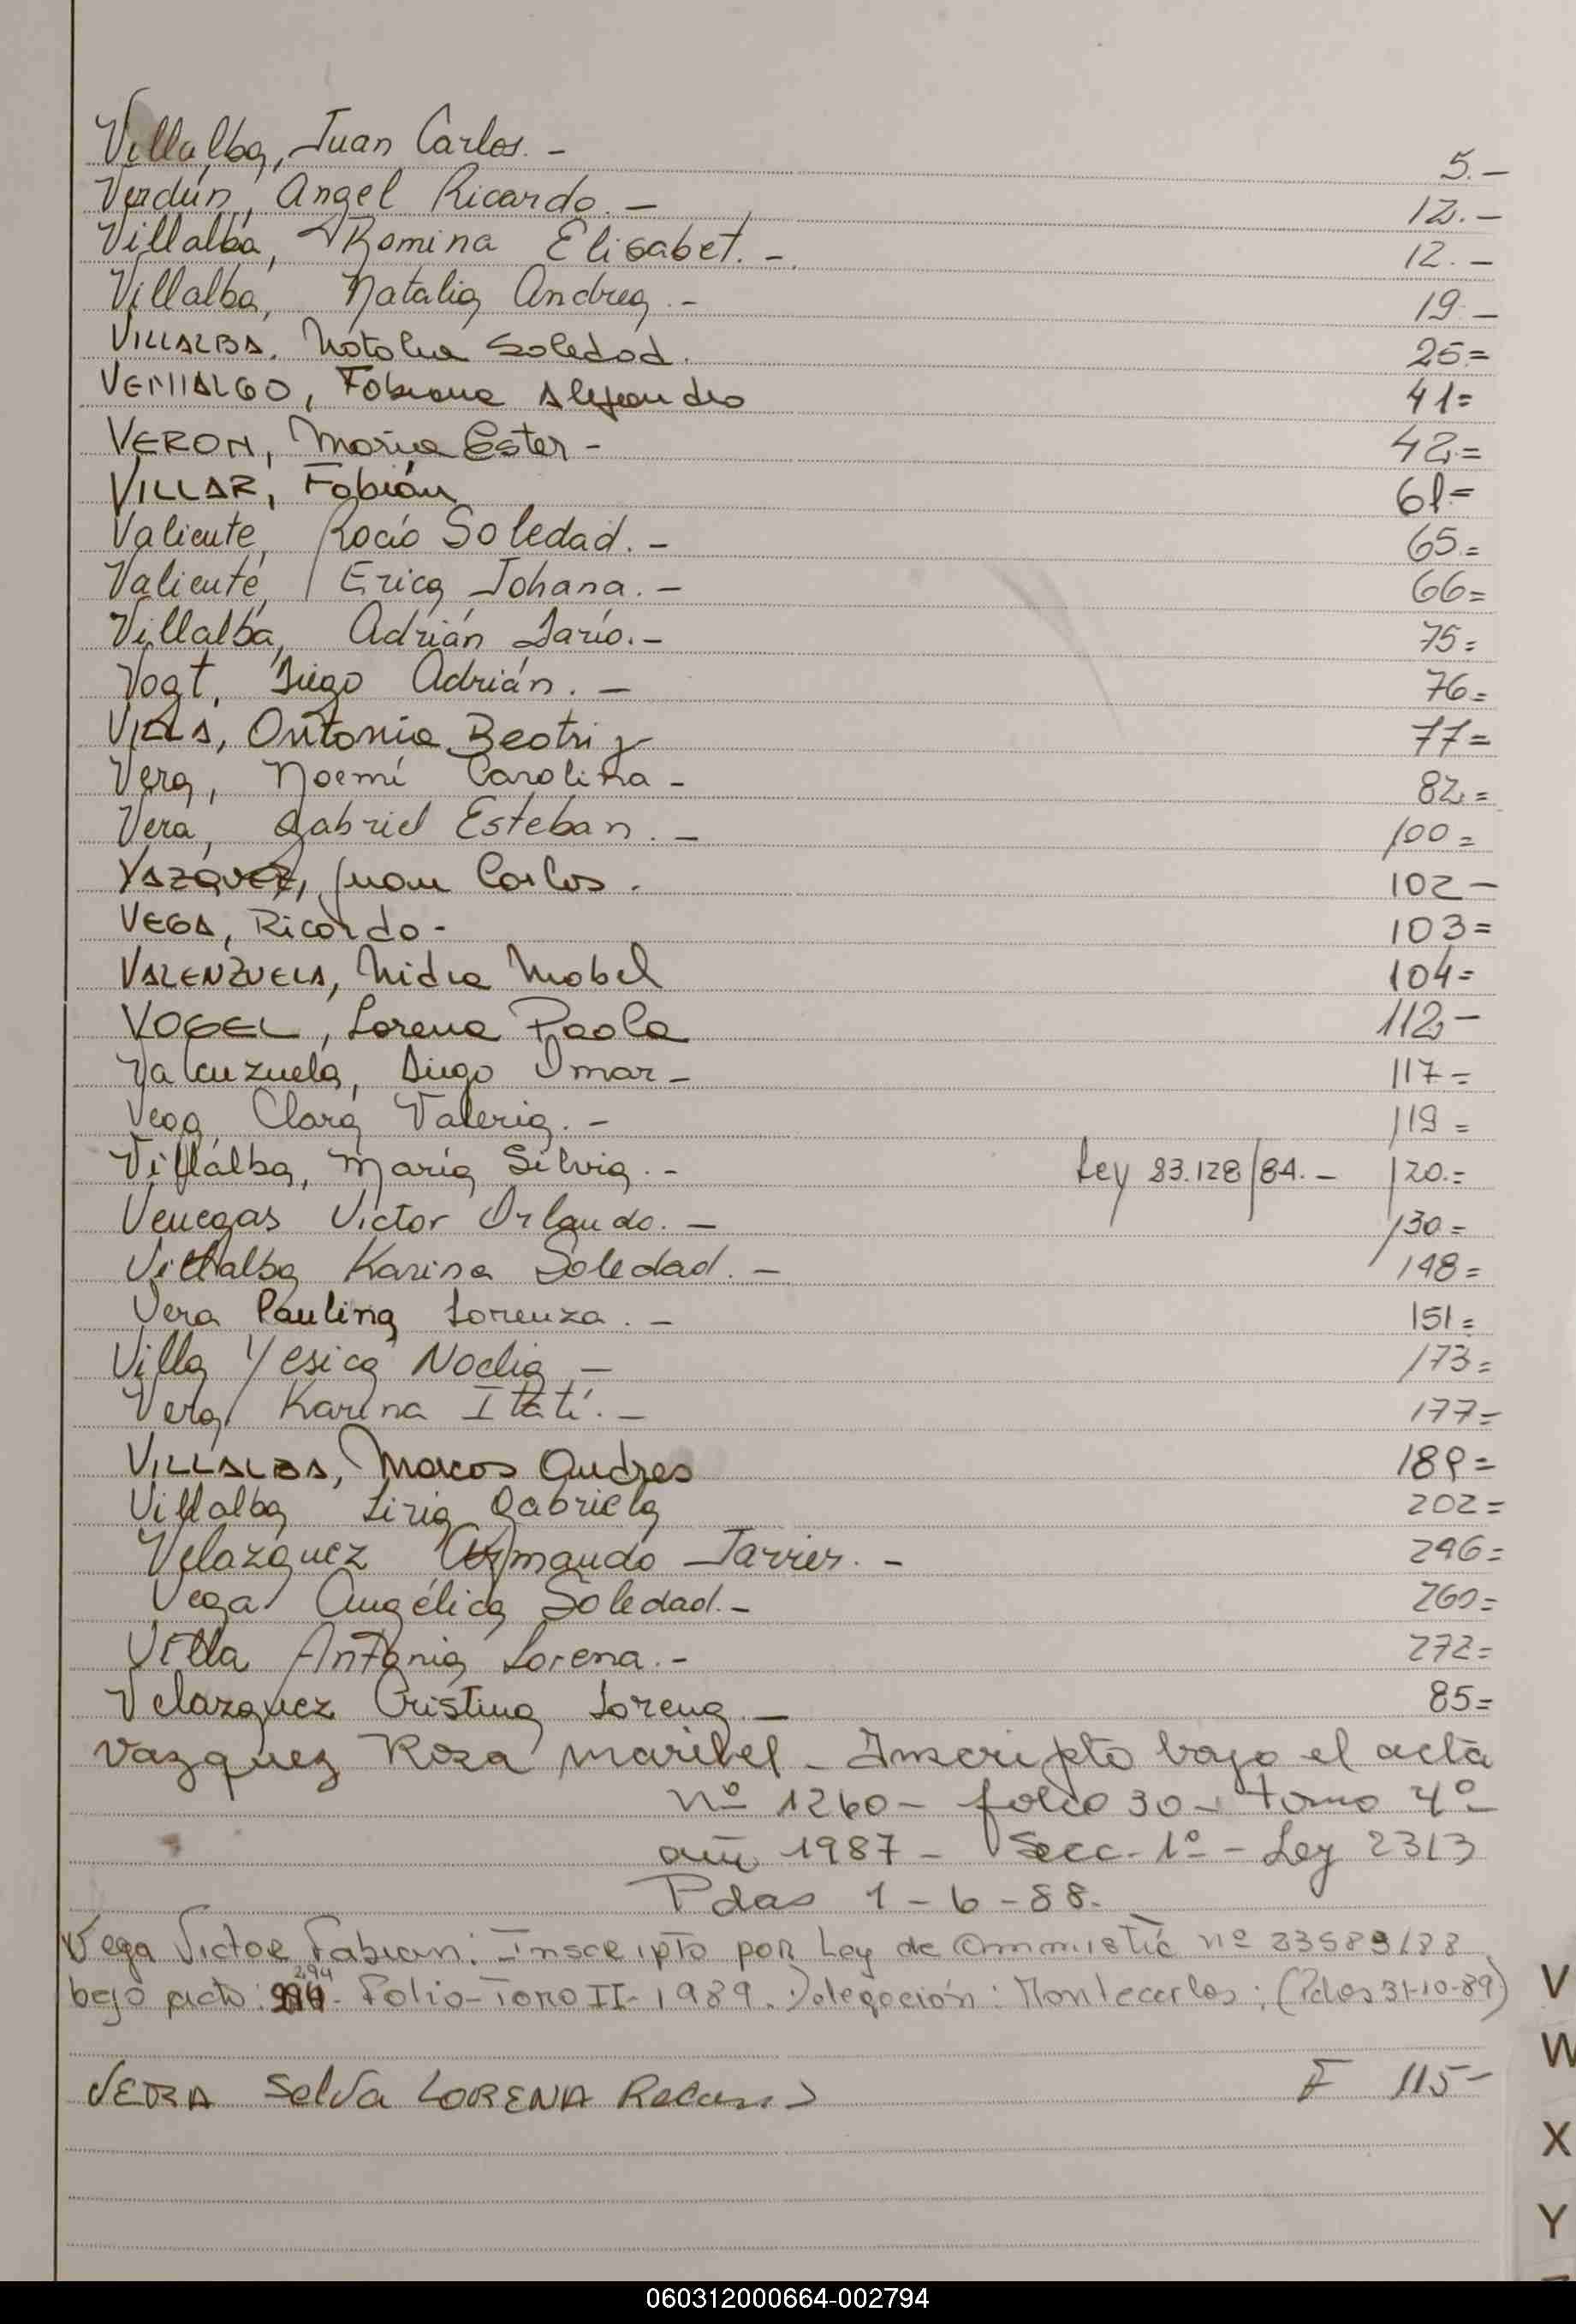 Villalba, Juan Carlos. - 5.-
Verdún, Angel Ricardo. - 12.-
Villalba, Romina Elisabet. - 12.-
Villalba, Natalia Andrea. - 19.-
VILLALBA, Natalia Soledad. 25=
VEMIALGO, Fabiana Alejandra 41=
VERON, María Ester - 42.=
VILLAR, Fabián 61=
Valiente, Rocío Soledad. - 65.=
Valiente, Erica Johana. - 66=
Villalba, Adrián Darío. - 75=
Vogt, Diego Adrián. - 76=
Antonia Beatriz 77=
Vera, Noemí Carolina - 82.=
Vera, Gabriel Esteban. - 100=
Juan Carlos. 102-
VEGA, Ricardo - 103=
VALENZUELA, Nidia Mabel 104=
VOGEL, Lorena Paola 112-
Valenzuela, Diego Omar - 117=
Vega Clara Valeria. - 119=
Villalba, María Silvia. - Ley 23.128/84. - 120.=
Venegas Victor Orlando. - 130=
Villalba Karina Soledad. - 148=
Vera Paulina Lorenza. - 151=
Villa Yesica Nodia - 173=
Vera Karina Itatí. - 177=
VILLALBA, Marcos Andres 189=
Villalba Liria Gabriela 202=
Velazquez Armando Javier. - 246=
Vega Angélica Soledad. - 260=
Villa Antonia Lorena. - 272=
Velazquez Cristina Lorena - 85=
Vazquez Rosa Maribel - Inscripto bajo el acta
nº 1260 - folio 30 - tomo 4º -
año 1987 - Secc. 1º - Ley 2313
Pdas 1-6-88.
Vega Victor Fabian: Inscripto por Ley de Ammistía nº 23583/88
bajo acta: 294 - Folio - Tomo II - 1989. Delegación: Montecarlos; (Pdas 31-10-89)
VERA Selva LORENA F 115-
V
W
X
Y
060312000664-002794